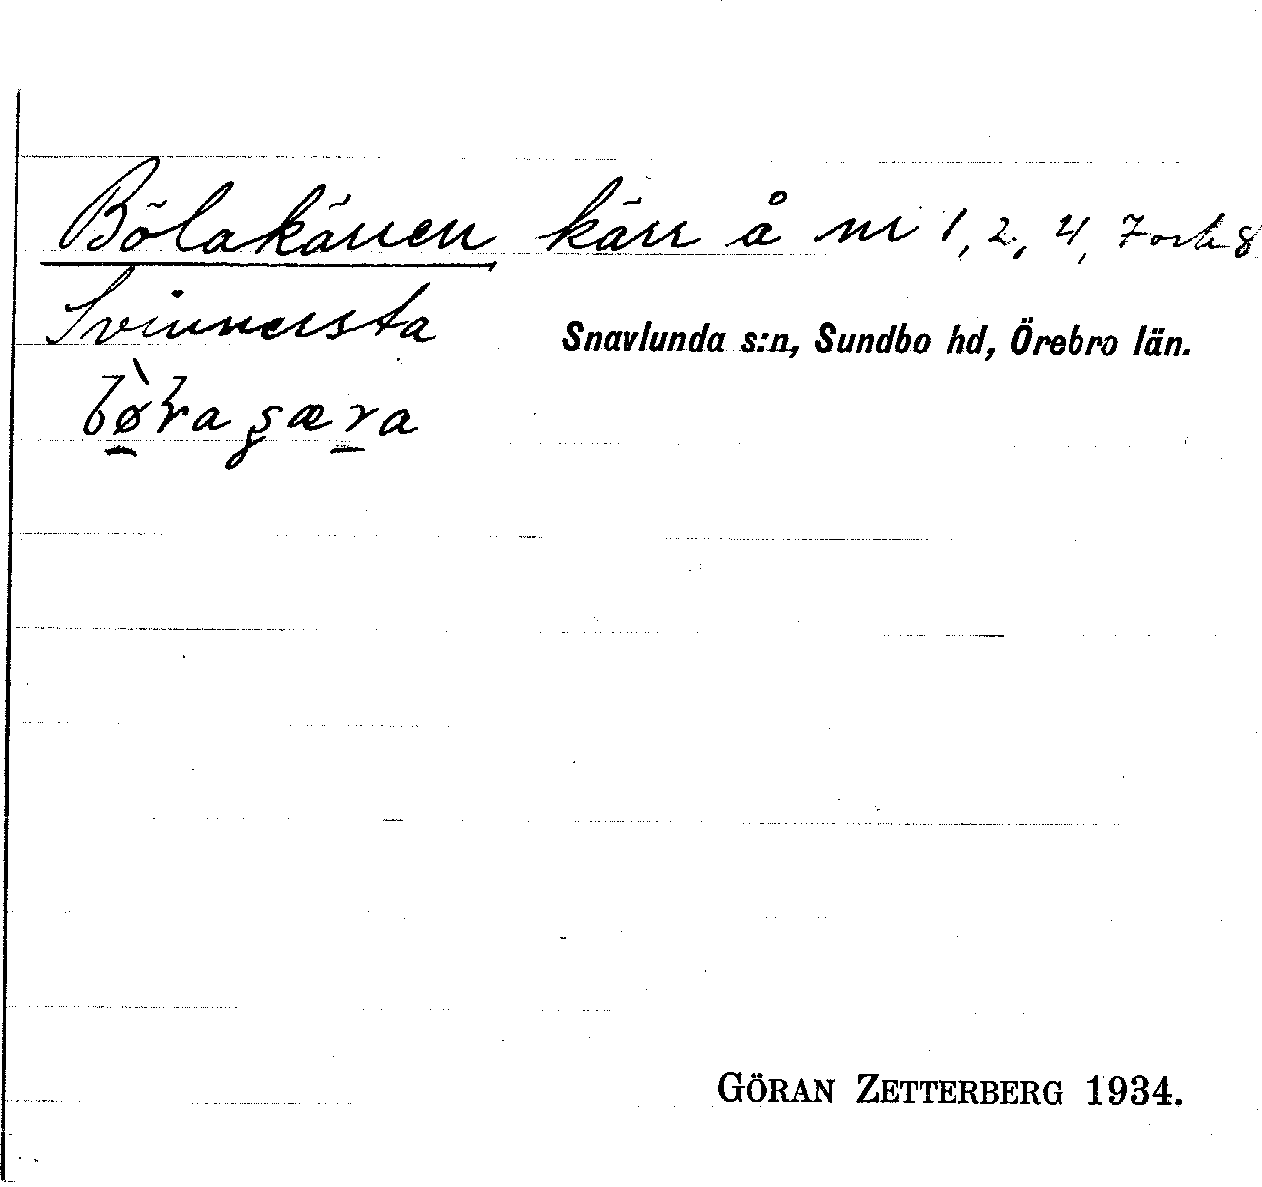 Bölakärren kärr å nr 1, 2, 4, 7 och 8
Svinnersta
Snavlunda s:n, Sundbo hd, Örebro län.
GÖRAN ZETTERBERG 1934.